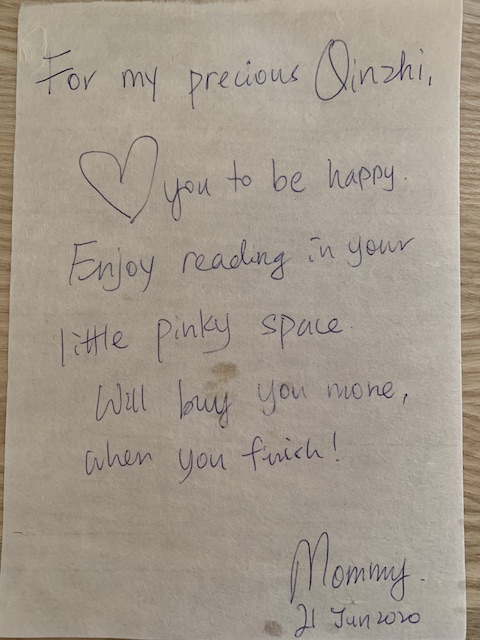 For my precious Qinzhi,
♡ you to be happy.
Enjoy reading in your
little pinky space.
Will buy you more,
when you finish!
Mommy.
21 Jun 2020